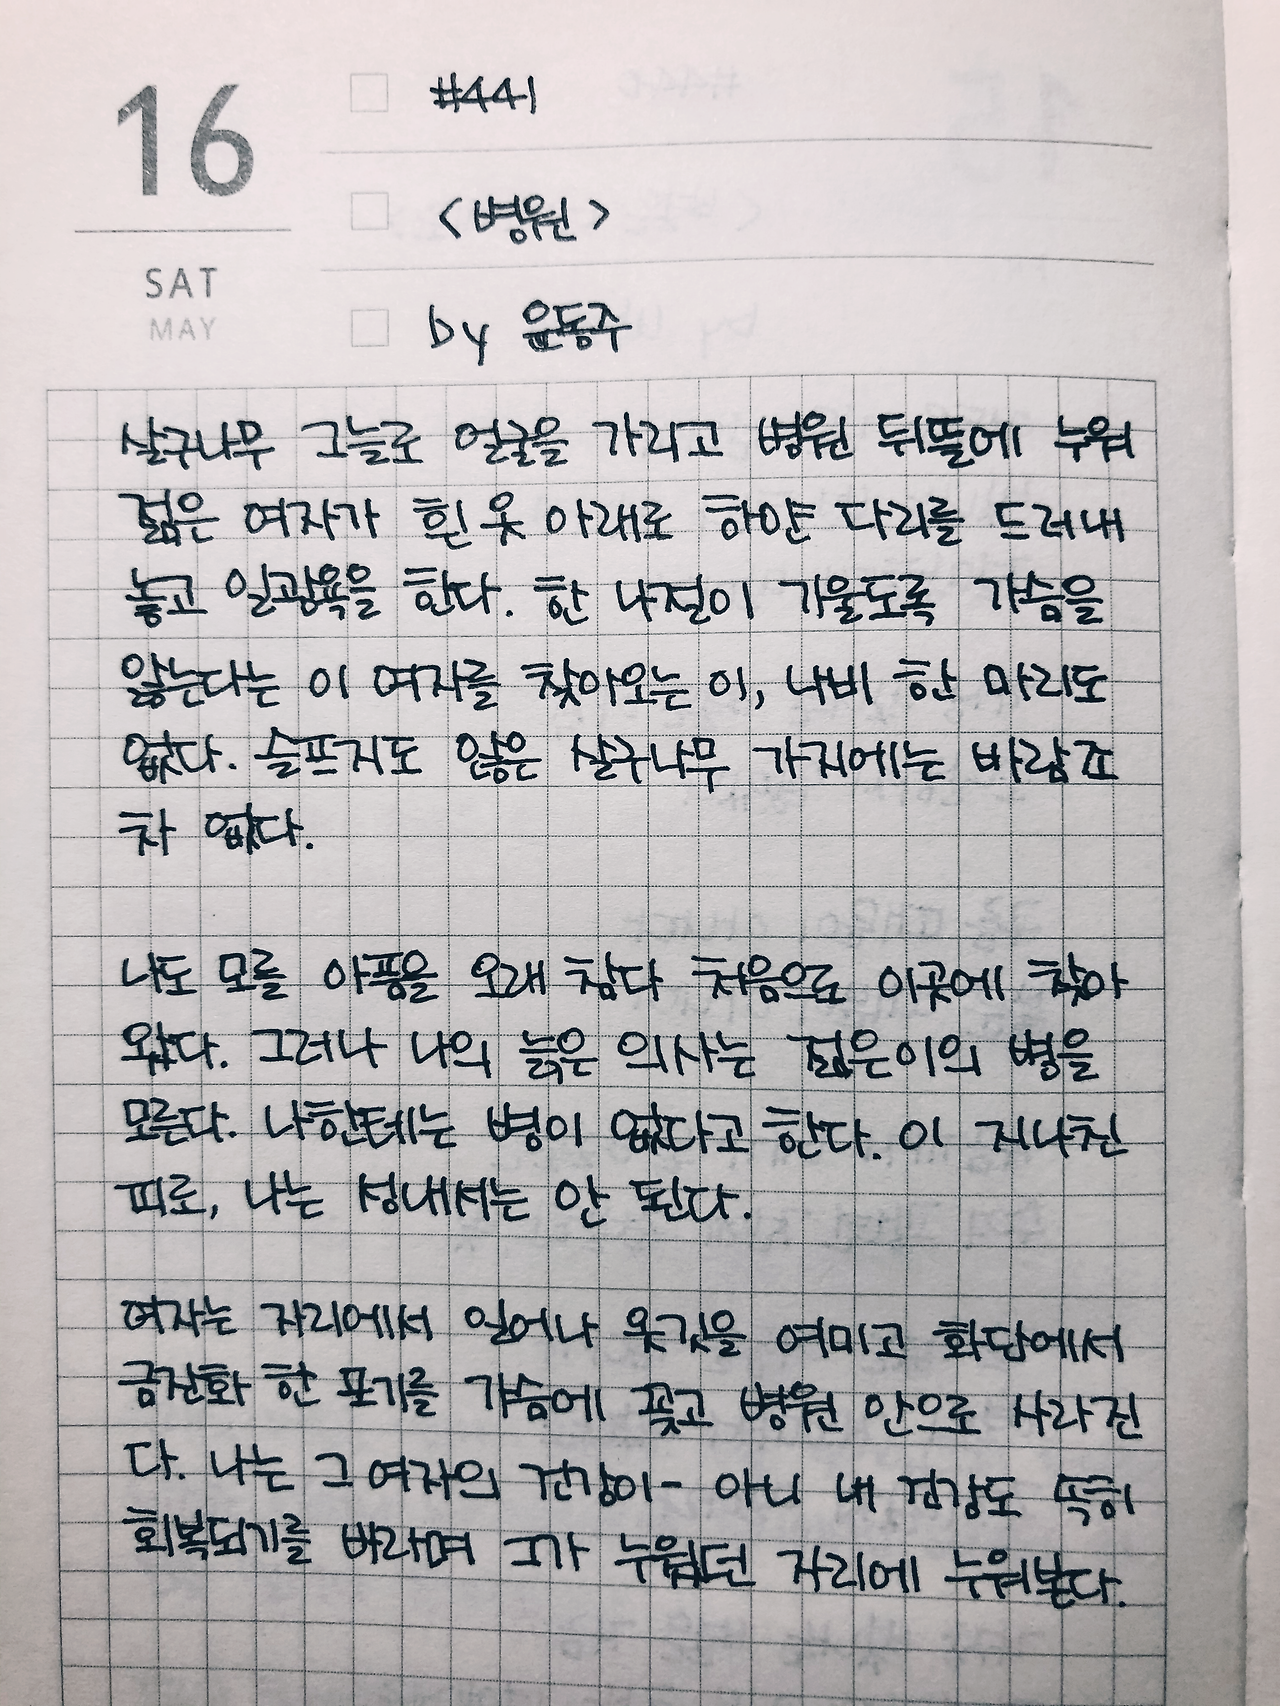 16
SAT
MAY
#441
<병원>
by 윤동주
살구나무 그늘로 얼굴을 가리고 병원 뒤뜰에 누워
젊은 여자가 흰 옷 아래로 하얀 다리를 드러내
놓고 일광욕을 한다. 한 나절이 기울도록 가슴을
앓는다는 이 여자를 찾아오는 이, 나비 한 마리도
없다. 슬프지도 않은 살구나무 가지에는 바람조
차 없다.
나도 모를 아픔을 오래 참다 처음으로 이곳에 찾아
왔다. 그러나 나의 늙은 의사는 젊은이의 병을
모른다. 나한테는 병이 없다고 한다. 이 지나친
피로, 나는 성내서는 안 된다.
여자는 자리에서 일어나 옷깃을 여미고 화단에서
금잔화 한 포기를 가슴에 꽂고 병원 안으로 사라진
다. 나는 그 여자의 건강이- 아니 내 건강도 속히
회복되기를 바라며 그가 누웠던 자리에 누워본다.